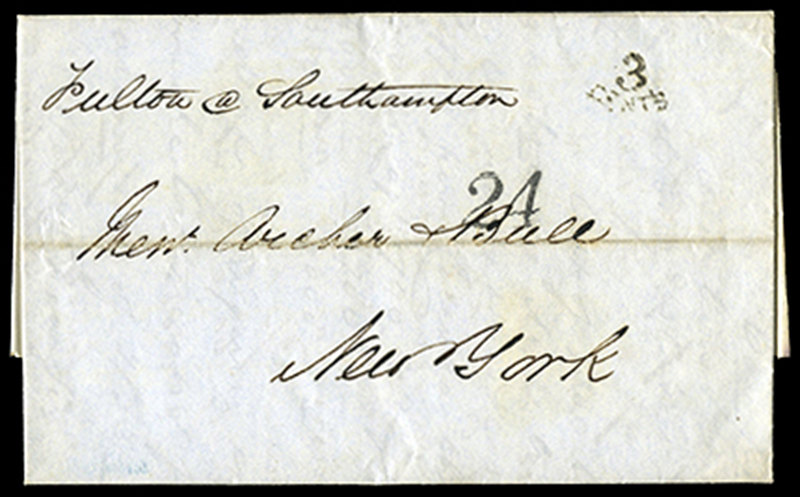 Fulton @ Southampton
3
CENTS
24
Messrs. Archer & Bull
New York